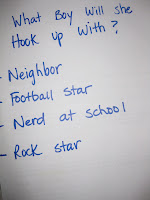 What Boy Will she
Hook up With?
- Neighbor
- Football star
- Nerd at school
- Rock star